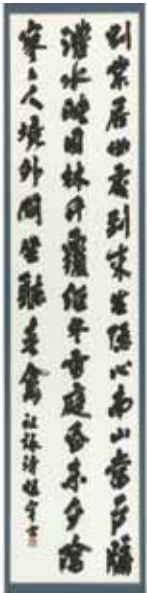 別業居幽處到來生隱心南山當戶牖
灃水映園林竹覆經冬雪庭昏未夕陰
寥〻人境外閒坐聽春禽 祖詠詩